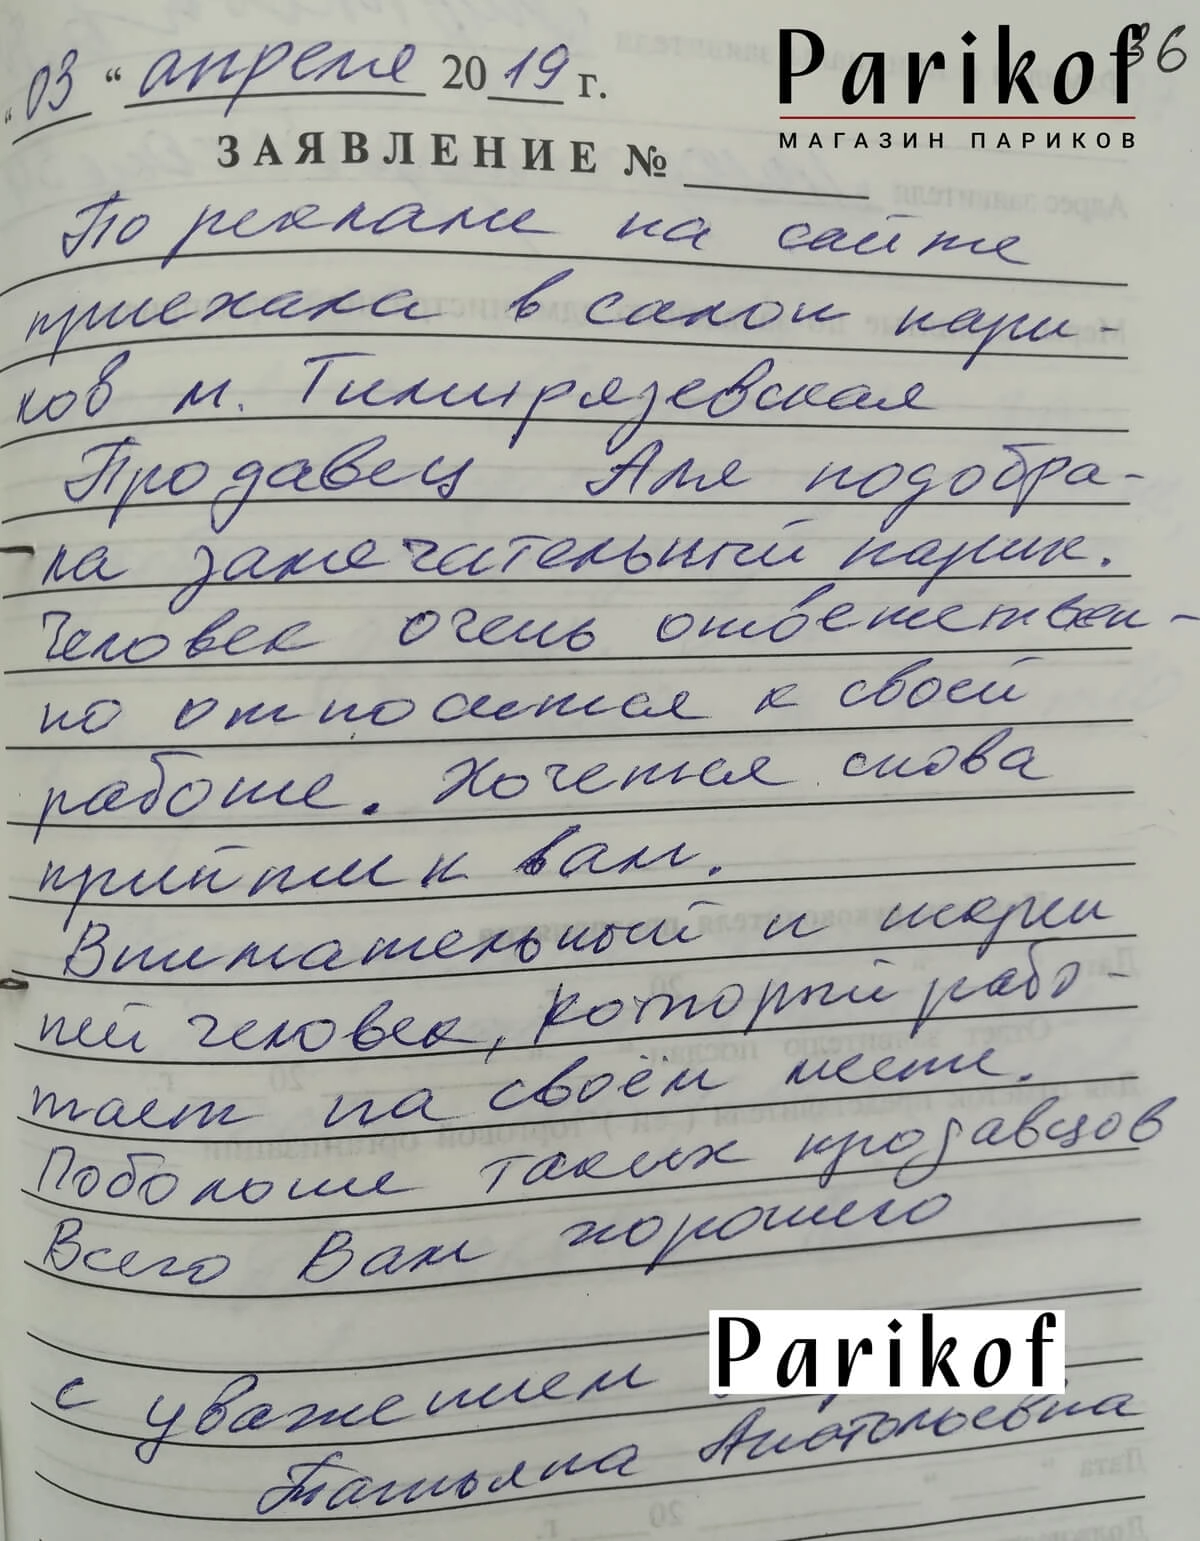 Parikof
МАГАЗИН ПАРИКОВ
36
"03" апреля 2019 г.
ЗАЯВЛЕНИЕ №
По рекламе на сайте
приехала в салон пари-
ков м. Тимирязевская
Продавец Аля подобра-
ла замечательный парик.
Человек очень ответствен-
но относится к своей
работе. Хочется снова
прийти к вам.
Внимательный и терпи
пей человек, который рабо-
тает на своём месте.
Побольше таких продавцов
Всего Вам хорошего
Parikof
с уважением
Татьяна Анатольевна